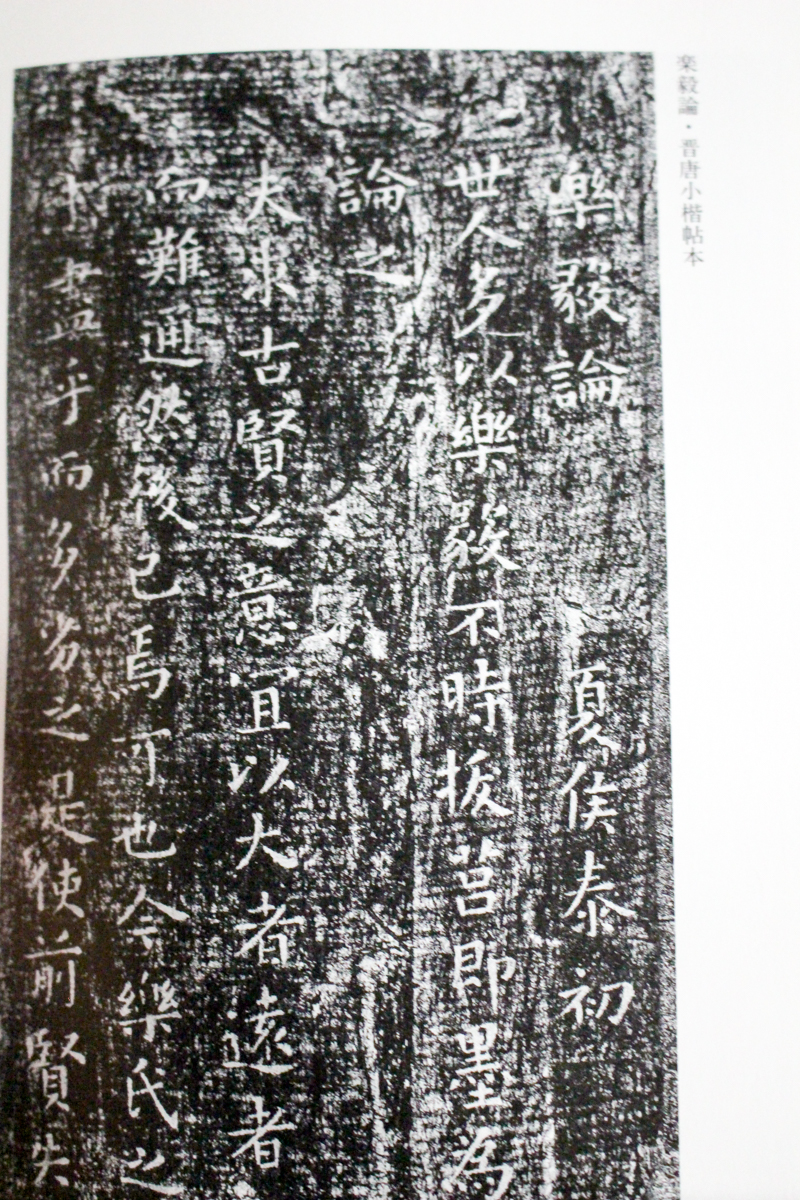 楽毅論・晋唐小楷帖本
樂毅論 夏侯泰初
世人多以樂毅不時拔莒即墨為
論之
夫求古賢之意宜以大者遠者
而難通然後已焉可也今樂氏之
盡乎而多劣之是使前賢失